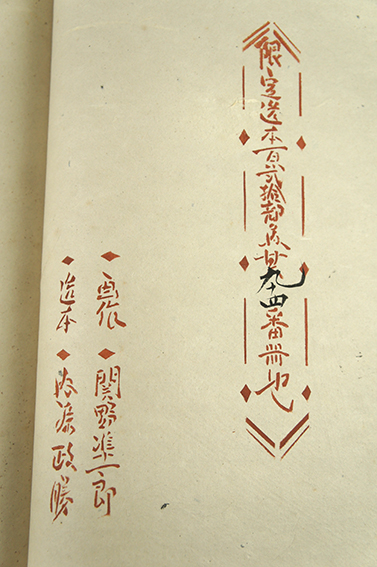 限定造本百弐拾部内其九十四番冊也
画作 関野凖一郎
造本 内藤政勝